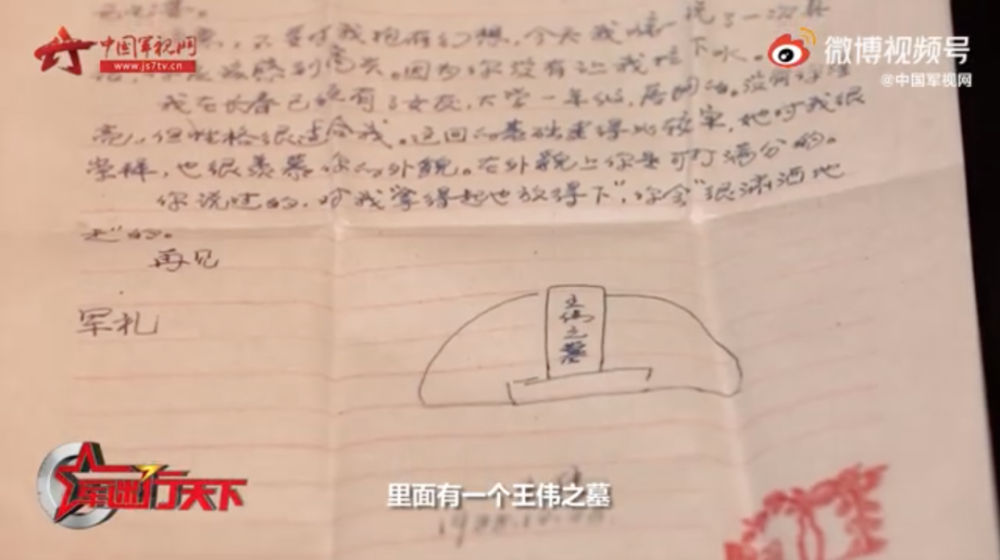 中国军视网
www.js7tv.cn
微博视频号
@中国军视网
不要对我抱有幻想,今天我
感到高兴。因为你没有让我
下水。
我在长春已经有了女友,大学一年级,
亮,但性格很适合我。这回的基础建得比较牢,她对我很
崇拜,也很羡慕你的外貌。在外貌上你是可打满分的。
你说过的,对我"拿得起也放得下",你会"很潇洒地
"的。
再见
军礼
王伟之墓
军迷行天下
里面有一个王伟之墓